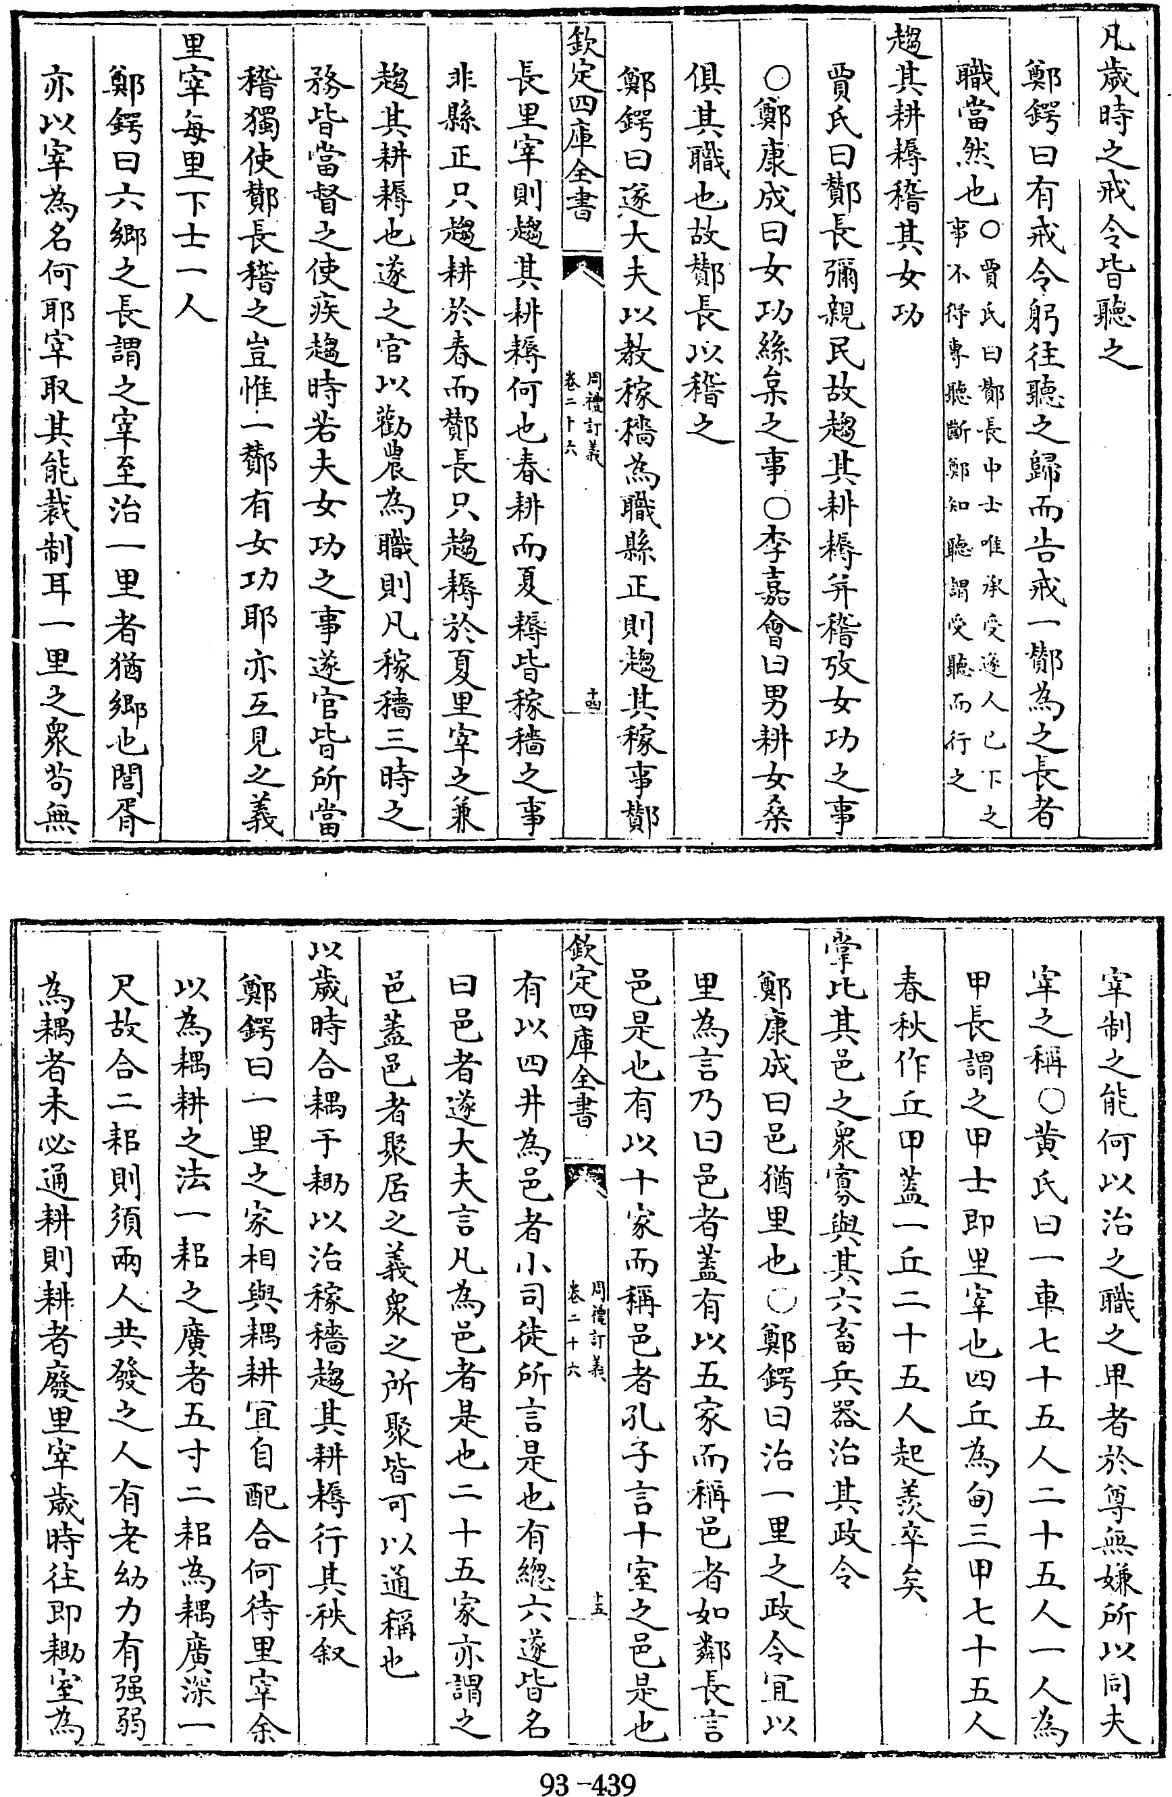 凡歲時之戒令皆聽之
鄭鍔曰有戒令躬往聽之歸而告戒一酇為之長者
職當然也○賈氏曰酇長中士唯承受遂人已下之
事不得專聽斷鄭知聽謂受聽而行之
趨其耕耨稽其女功
賈氏曰酇長彌親民故趨其耕耨并稽攷女功之事
○鄭康成曰女功絲枲之事○李嘉會曰男耕女桑
俱其職也故酇長以稽之
鄭鍔曰遂大夫以教稼穡為職縣正則趨其稼事酇
欽定四庫全書
周禮訂義
卷二十六
十四
長里宰則趨其耕耨何也春耕而夏耨皆稼穡之事
非縣正只趨耕於春而酇長只趨耨於夏里宰之兼
趨其耕耨也遂之官以勸農為職則凡稼穡三時之
務皆當督之使疾趨時若夫女功之事遂官皆所當
稽獨使酇長稽之豈惟一酇有女功耶亦互見之義
里宰每里下士一人
鄭鍔曰六鄉之長謂之宰至治一里者猶鄉也閭胥
亦以宰為名何耶宰取其能裁制耳一里之衆茍無
宰制之能何以治之職之卑者於尊無嫌所以同夫
宰之稱○黄氏曰一車七十五人二十五人一人為
甲長謂之甲士即里宰也四丘為甸三甲七十五人
春秋作丘甲蓋一丘二十五人起羨卒矣
掌比其邑之衆寡與其六畜兵器治其政令
鄭康成曰邑猶里也○鄭鍔曰治一里之政令宜以
里為言乃曰邑者蓋有以五家而稱邑者如鄰長言
邑是也有以十家而稱邑者孔子言十室之邑是也
欽定四庫全書
周禮訂義
卷二十六
十五
有以四井為邑者小司徒所言是也有總六遂皆名
曰邑者遂大夫言凡為邑者是也二十五家亦謂之
邑蓋邑者聚居之義衆之所聚皆可以通稱也
以歲時合耦于耡以治稼穡趨其耕耨行其秩叙
鄭鍔曰一里之家相與耦耕宜自配合何待里宰余
以為耦耕之法一耜之廣者五寸二耜為耦廣深一
尺故合二耜則須兩人共發之人有老幼力有强弱
為耦者未必通耕則耕者廢里宰歲時往即耡室為
93-439